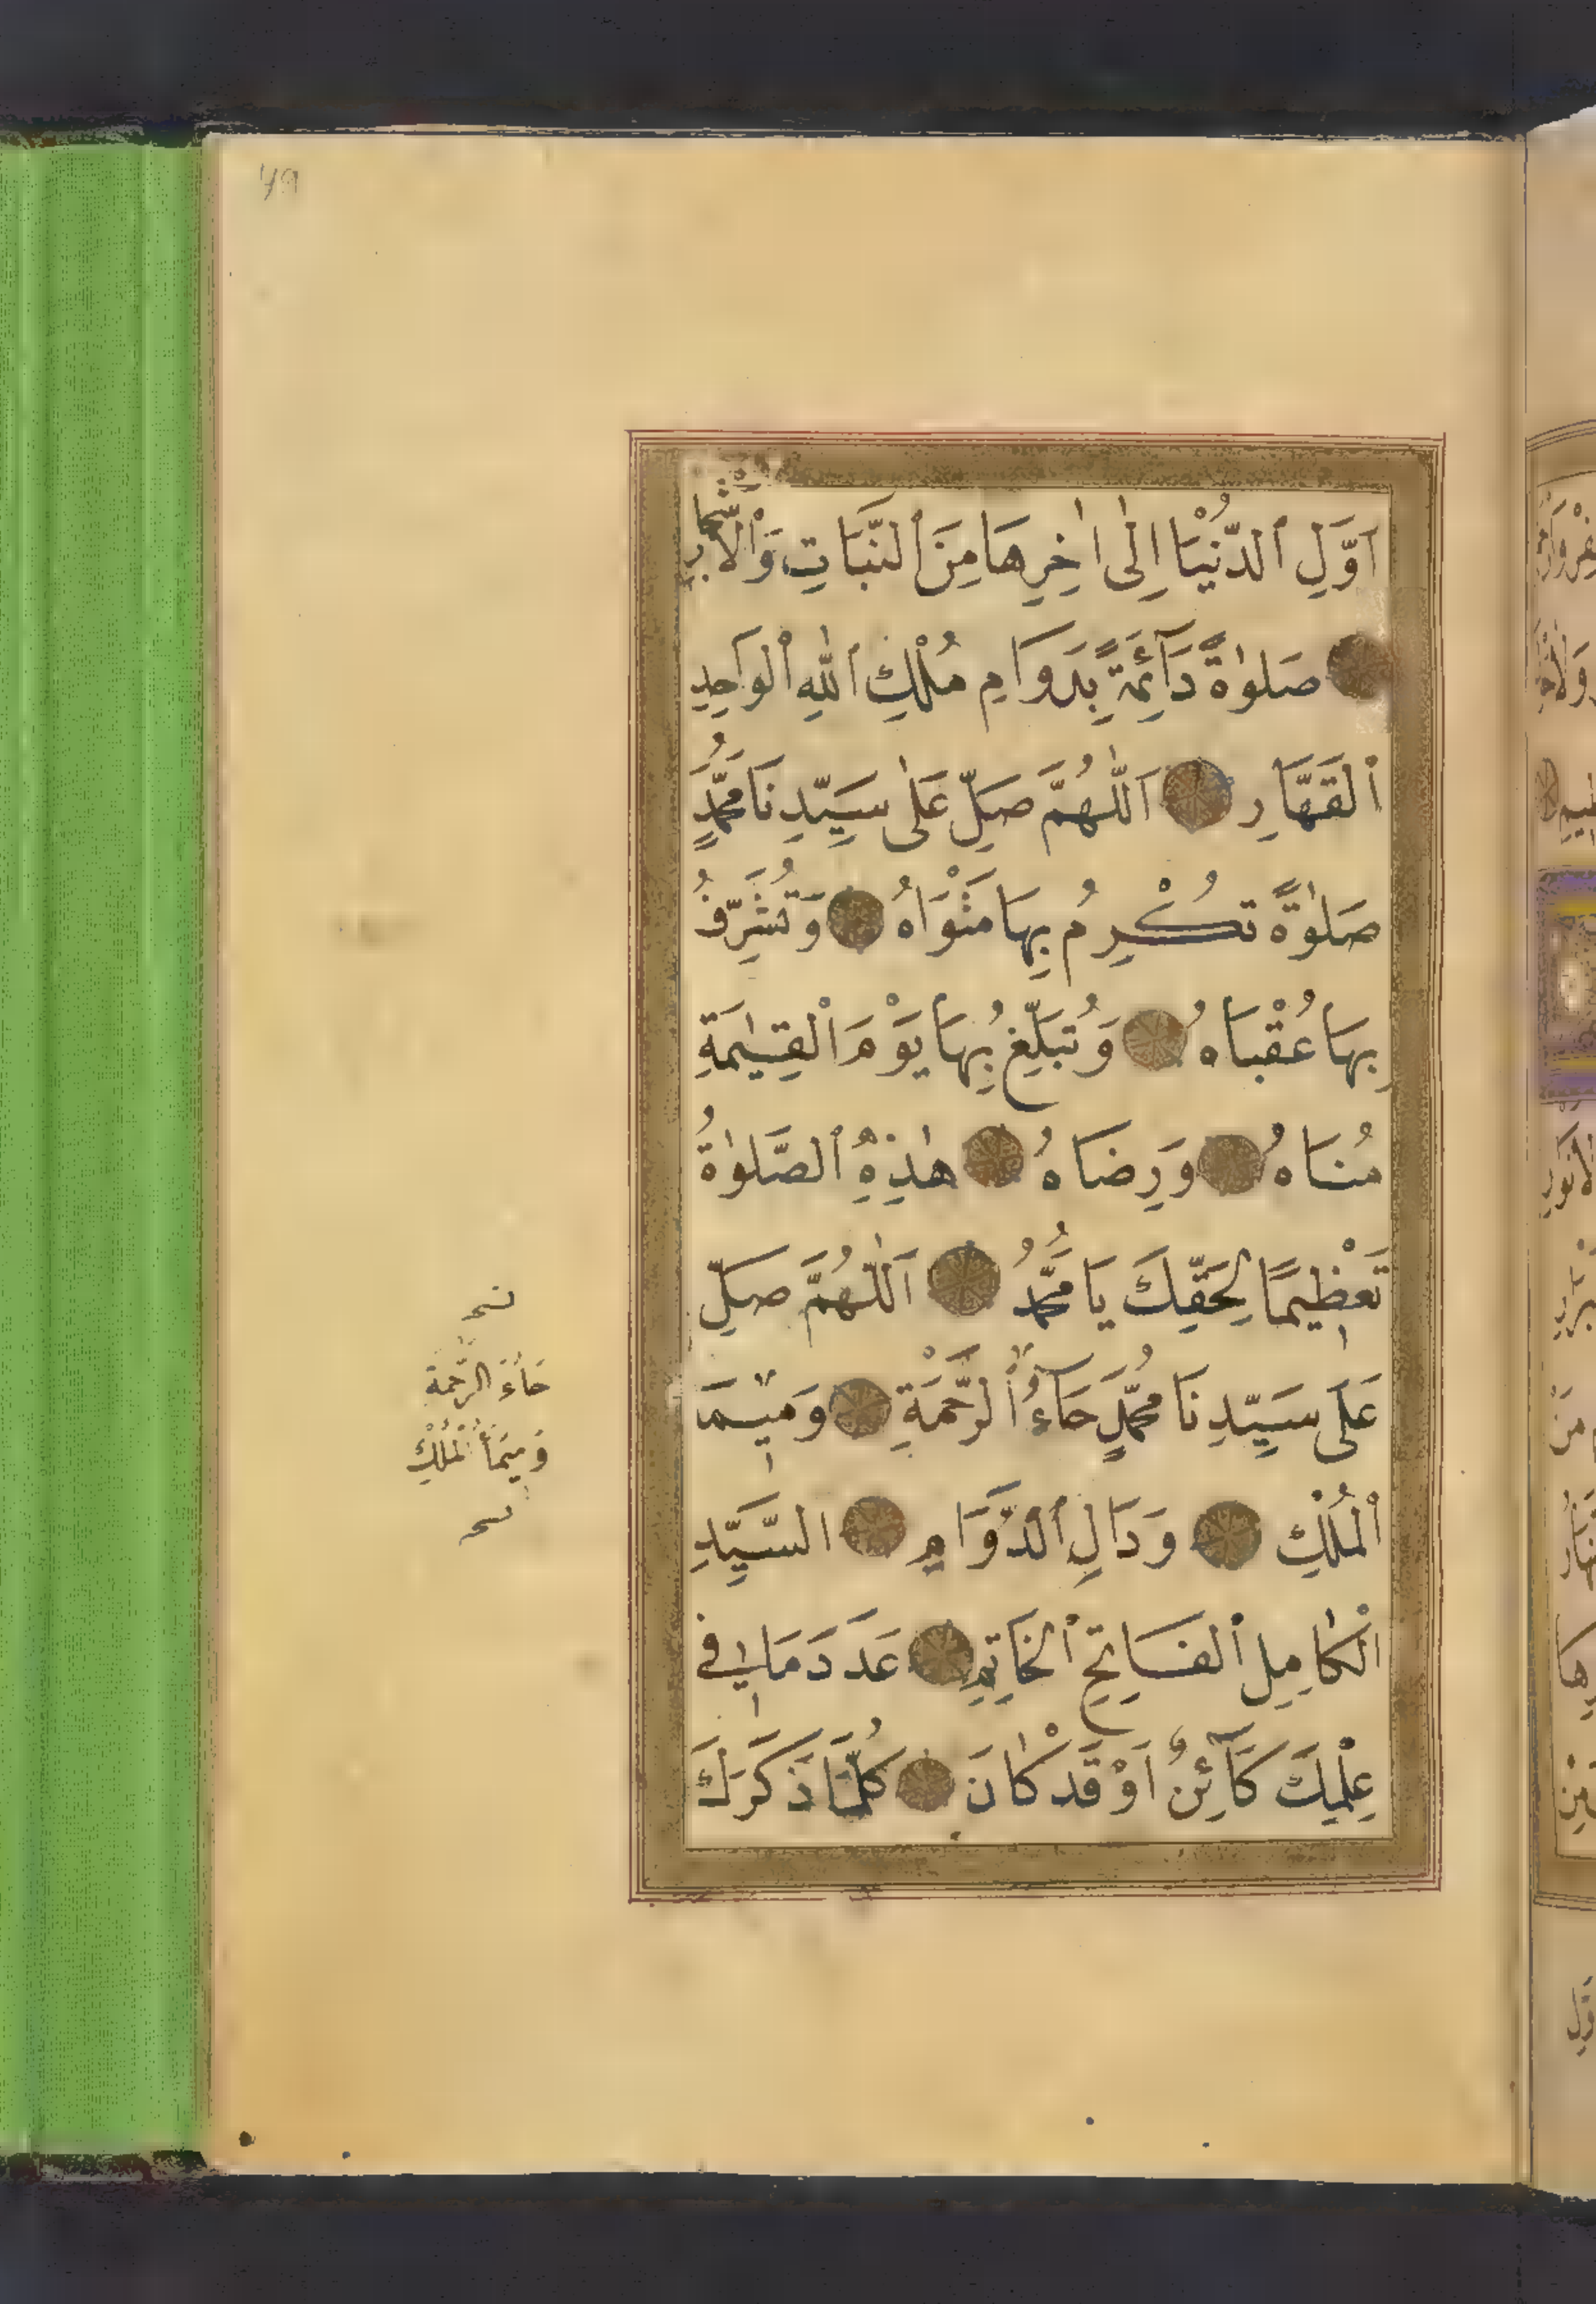 اَوَّلِ ٱلدُّنْيَا اِلٰى اٰخِرِهَا مِنَ ٱلنَّبَاتِ وَٱلْاَشْجَارِ
صَلٰوةً دَآئِمَةً بِدَوَامِ مُلْكِ ٱللّٰهِ ٱلْوَاحِدِ
ٱلْقَهَّارِ اَللّٰهُمَّ صَلِّ عَلٰى سَيِّدِنَا مُحَمَّدٍ
صَلٰوةً تُكْرِمُ بِهَا مَثْوَاهُ وَتُشَرِّفُ
بِهَا عُقْبَاهُ وَتُبَلِّغُ بِهَا يَوْمَ ٱلْقِيٰمَةِ
مُنَاهُ وَرِضَاهُ هٰذِهِ ٱلصَّلٰوةُ
تَعْظِيمًا لِحَقِّكَ يَا مُحَمَّدُ اَللّٰهُمَّ صَلِّ
عَلَى سَيِّدِنَا مُحَمَّدٍ حَاءُ ٱلرَّحْمَةِ وَمِيمَا
ٱلْمُلْكِ وَدَالِ ٱلدَّوَامِ السَّيِّدِ
ٱلْكَامِلِ ٱلْفَاتِحِ ٱلْخَاتِمِ عَدَدَ مَا فِي
عِلْمِكَ كَآئِنٌ اَوْ قَدْ كَانَ كُلَّمَا ذَكَرَكَ
حَاءَ الرَّحْمَة
وَمِيمَا ٱلْمُلْكِ